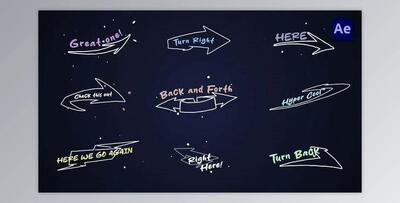 Great one!
Turn Right
HERE
Ae
Check this out
Back and Forth
Hyper Cool
HERE WE GO AGAIN
Right
Here!
Turn Back